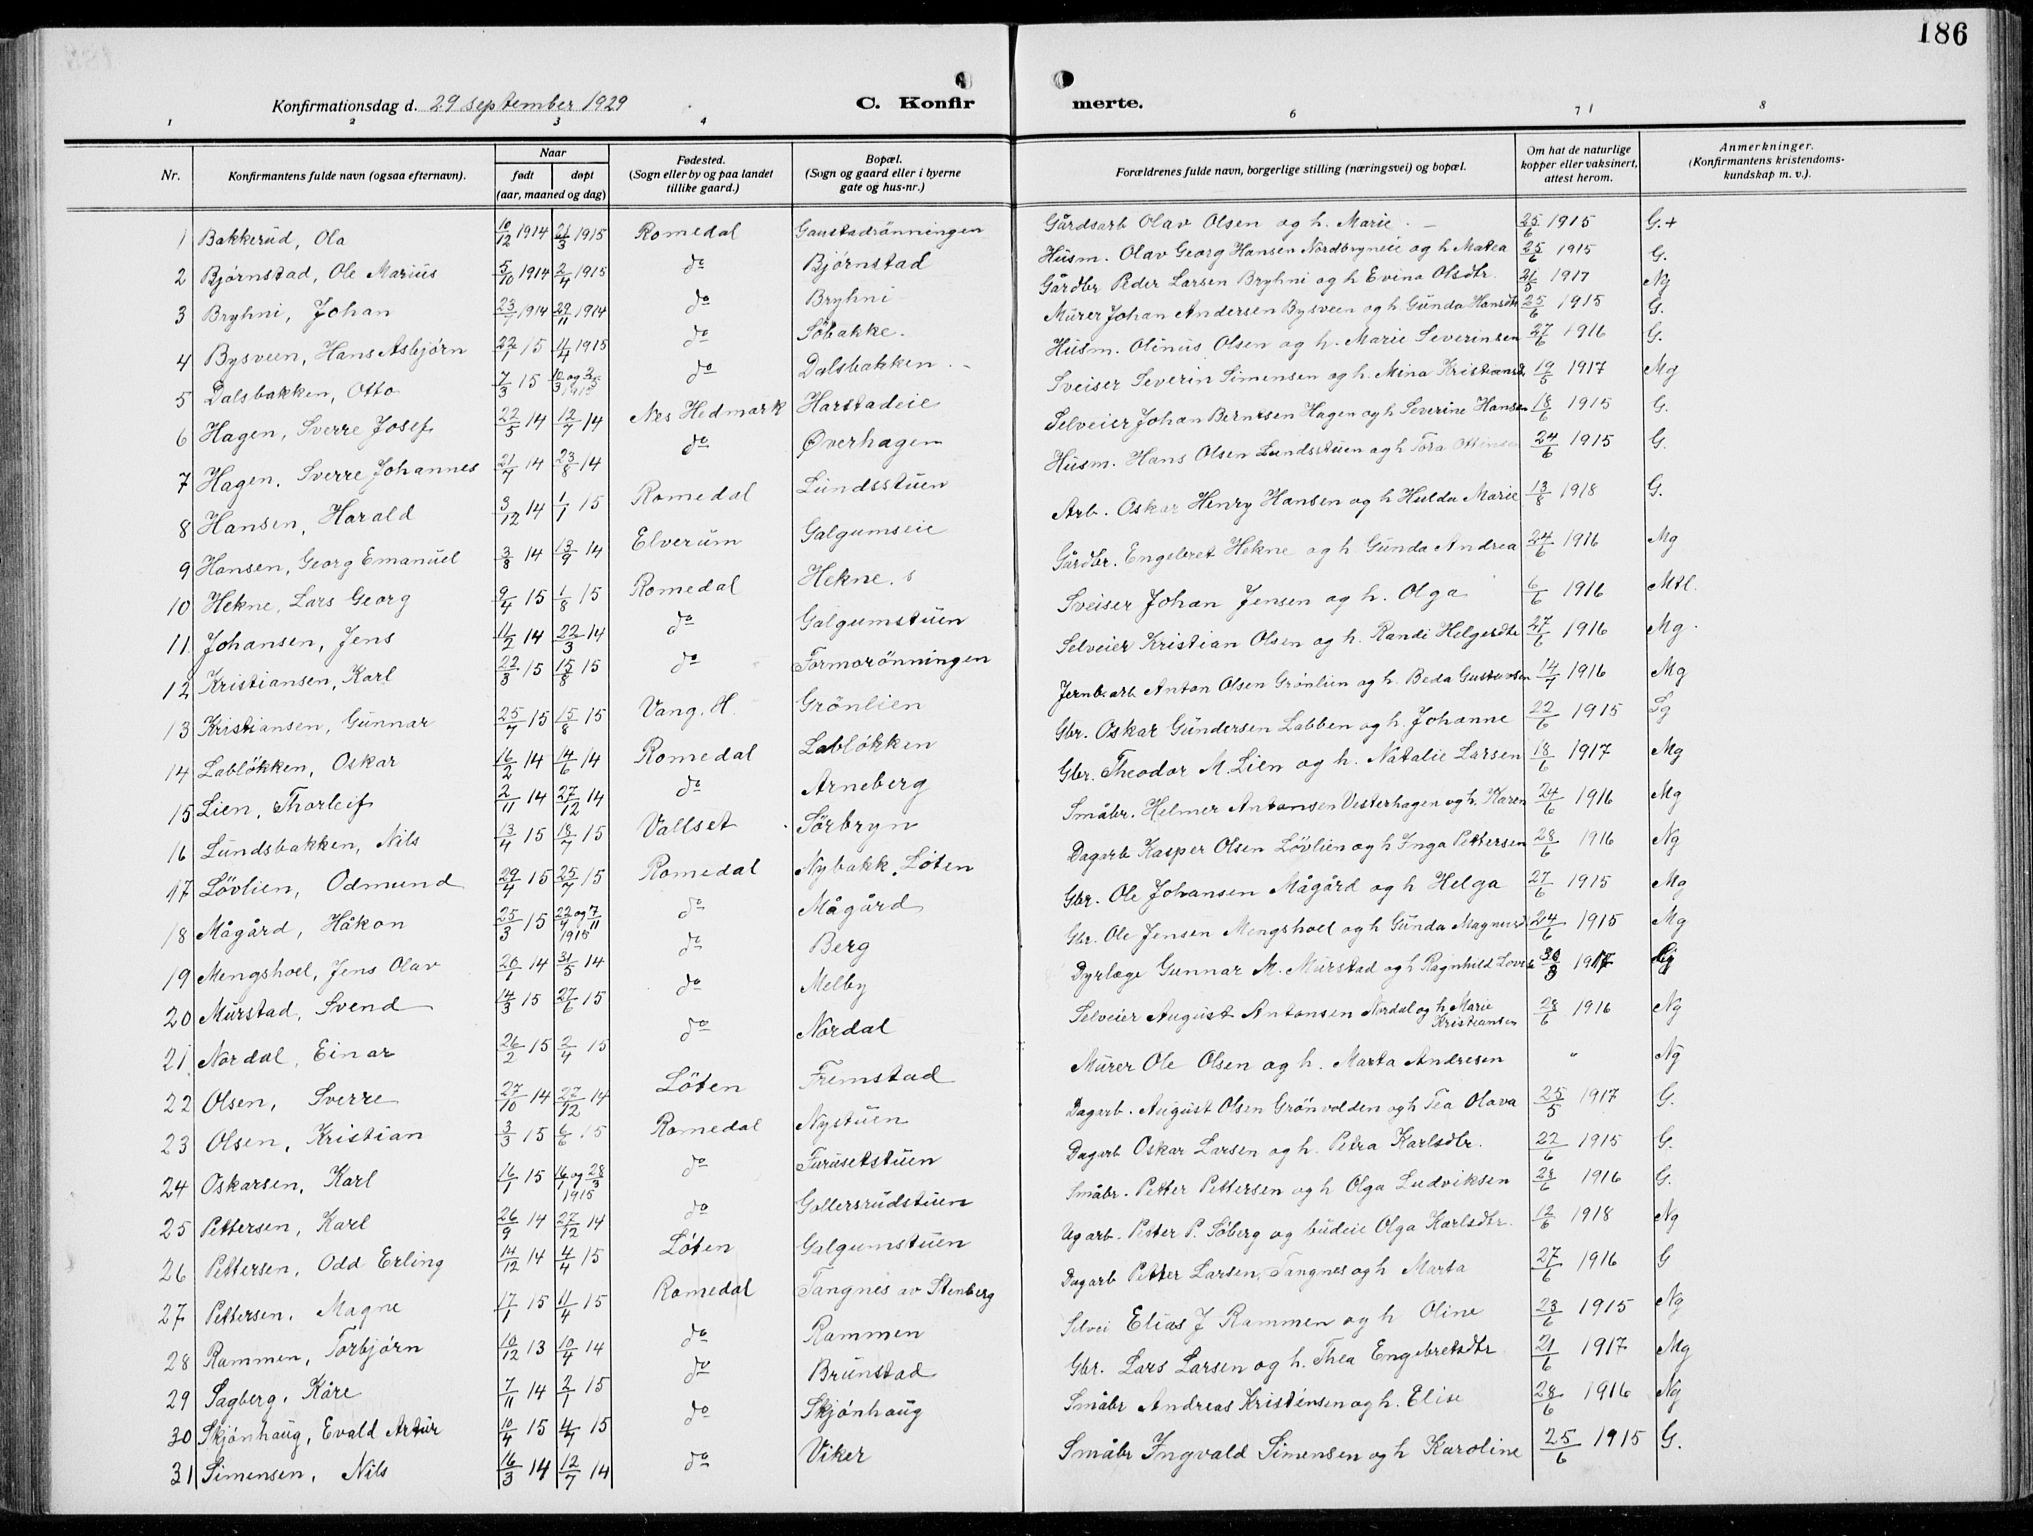 186
Konfirmationsdag d. 29 september 1929
C. Konfirmerte.
1 2 3 4 6 7 8
Nr. Konfirmantens fulde navn (ogsaa efternavn). Naar født døpt (aar, maaned og dag) Fødested. (Sogn eller by og paa landet tillike gaard.) Bopæl. (Sogn og gaard eller i byerne gate og hus-nr.) Forældrenes fulde navn, borgerlige stilling (næringsvei) og bopæl. Om hat de naturlige kopper eller vaksinert, attest herom. Anmerkninger. (Konfirmantens kristendoms-kundskap m. v.).
1 Bakkerud, Ola 10/12 1914 21/3 1915 Romedal Gaustadrönningen Gårdsarb Olav Olsen og h. Marie 25/6 1915 G.+
2 Bjørnstad, Ole Marius 5/10 1914 2/4 1915 do Bjørnstad Husm. Olav Georg Hansen Nordbryneie og h Matea 25/6 1915 G.
3 Bryhni, Johan 23/1 1914 29/11 1914 do Bryhni Gårdbr Peder Larsen Bryhni og h Evina Olsdtr. 21/5 1917 Ng
4 Bysveen, Hans Asbjørn 22/1 15 11/4 1915 do Söbakke. Murer Johan Andersen Bysveen og h Gunda Hansdtr 25/6 1915 G.
5 Dalsbakken, Otto 7/3 15 10/3 og 2/5 1915 do Dalsbakken. Husm. Olinus Olsen og h. Marie Severinsen 27/6 1916 G.
6 Hagen, Sverre Josef 22/5 14 12/7 14 Nes Hedmark Harstadeie Sveiser Severin Simensen og h. Mina Kristiansd. 19/5 1917 Mg
7 Hagen, Sverre Johannes 21/7 14 23/8 14 do Øverhagen Selveier Johan Berntsen Hagen og h Severine Hansen 18/6 1915 G.
8 Hansen, Harald 3/12 14 1/1 15 Romedal Lundsstuen Husm. Hans Olsen Lundsstuen og h Tora 24/6 1915 G.
9 Hansen, Georg Emanuel 3/8 14 13/9 14 Elverum Galgumseie Arb. Oskar Henry Hansen og h Hulda Marie 13/8 1918 G.
10 Hekne, Lars Georg 9/4 15 1/8 15 Romedal Hekne. s Gårdbr. Engebret Hekne og h Gunda Andrea 24/6 1916 Mg
11 Johansen, Jens 11/2 14 22/3 14 do Galgumstuen Sveiser Johan Jensen og h. Olga 6/6 1916 Mtl.
12 Kristiansen, Karl 22/3 15 15/8 15 do Formorönningen Selveier Kristian Olsen og h. Randi Helgesdtr 27/6 1916 Mg.
13 Kristiansen, Gunnar 25/7 15 15/8 15 Vang. H. Grönlien Jernb. arb Anton Olsen Grönlien og h. Beda Gustavsen 14/7 1916 Mg
14 Labløkken, Oskar 16/2 14 14/6 14 Romedal Labløkken Gbr. Oskar Gundersen Labben og h. Johanne 22/6 1915 Sg
15 Lien, Thorleif 2/11 14 27/12 14 do Arneberg Gbr. Theodor M. Lien og h. Natalie Larsen 18/6 1917 Mg
16 Lundsbakken, Nils 13/4 15 18/7 15 Vallset Sörbryn Småbr. Helmer Antonsen Vesterhagen og h. Karen 24/6 1916 Mg
17 Lövlien, Odmund 29/4 15 25/7 15 Romedal Nybakk, Löten Dagarb Kasper Olsen Lövlien og h Inga Pettersen 28/6 1916 Ng
18 Mågård, Håkon 25/3 15 22/4 og 7/11 1915 do Mågård Gbr. Ole Johansen Mågård og h Helga 27/6 1915 Mg
19 Mengshoel, Jens Olav 20/1 14 31/5 14 do Berg Gbr. Ole Jensen Mengshoel og h Gunda Magnusd 24/6 1915 Mg
20 Murstad, Svend 14/3 15 27/6 15 do Melby Dyrlæge Gunnar M. Murstad og h Ragnhild Lovise 30/8 1917
21 Nordal, Einar 26/2 15 2/4 15 do Nordal Selveier August Antonsen Nordal og h. Marie Kristiansen 28/6 1916 Ng
22 Olsen, Sverre 27/10 14 27/12 14 Löten Fremstad Murer Ole Olsen og h. Marta Andresen " Ng
23 Olsen, Kristian 3/3 15 6/6 15 Romedal Nystuen Dagarb. August Olsen Grönvolden og h Tea Olava 25/5 1917 G.
24 Oskarsen, Karl 16/1 15 16/1 og 28/3 1915 do Furusetstuen Dagarb Oskar Larsen og h. Petra Karlsdtr. 22/6 1915 G.
25 Pettersen, Karl 26/9 14 27/12 14 do Gollersrudstuen Småbr. Petter Pettersen og h Olga Ludviksen 28/6 1916 G.
26 Pettersen, Odd Erling 14/12 14 4/4 15 Löten Galgumstuen Ugarb. Peter P. Söberg og budeie Olga Karlsdtr. 12/6 1918 Ng
27 Pettersen, Magne 17/1 15 11/4 15 Romedal Tangnes av Stenberg Dagarb Petter Larsen, Tangnes og h Marta 27/6 1916 G
28 Rammen, Torbjørn 10/12 13 10/4 14 do Rammen Selvei Elias J Rammen og h Oline 23/6 1915 Ng
29 Sagberg, Kåre 7/11 14 2/1 15 do Brunstad Gbr. Lars Larsen og h. Thea Engebretsdtr 21/6 1917 Mg
30 Skjönhaug, Evald Artur 10/4 15 4/7 15 do Skjönhaug Småbr Andreas Kristensen og h. Elise 28/6 1916 Ng
31 Simensen, Nils 16/3 14 12/7 14 do Viker Småbr Ingvald Simensen og h Karoline 25/6 1915 G.